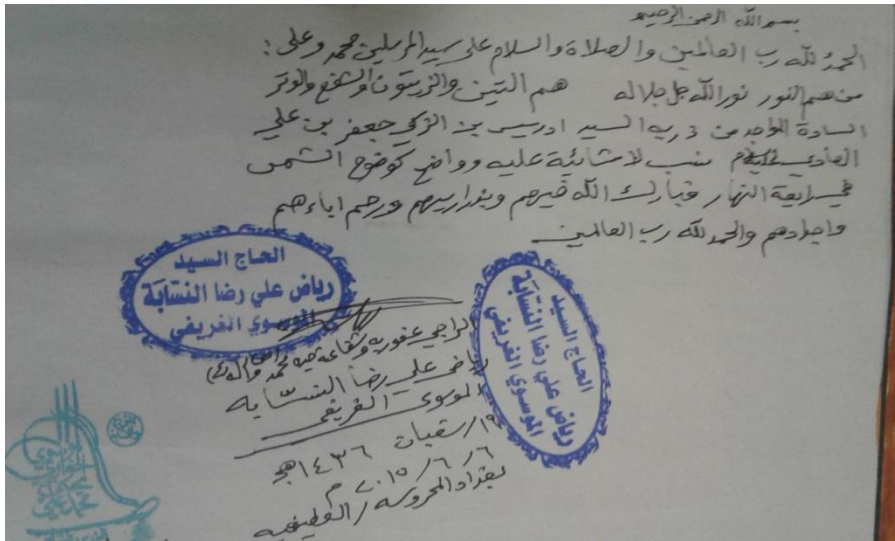 بسم الله الرحمن الرحيم
الحمدُ لله رب العالمين والصلاة والسلام على سيد المرسلين محمد وعلى:
من هم النور نور الله جل جلاله هم التين والزيتون والشفع والوتر
السادة من ذرية السيد ادريس بن الزكي جعفر بن علي
الهادي نسب لا شائبة عليه وواضح كوضوح الشمس
في رابعة النهار فبارك الله فيهم ورحم اباءهم
واجدادهم والحمد لله رب العالمين
الحاج السيد
رياض علي رضا النسّابَة
الموسوي الغريفي
الحاج السيد
رياض علي رضا النسّابَة
الموسوي الغريفي
الراجي عفو ربه وشفاعة محمد
رياض علي رضا النسّابه
الموسوي الغريفي
١٩/شعبان ١٤٣٦هج
٦/٦/٢٠١٥م
بغداد المحروسه/العطيفيه